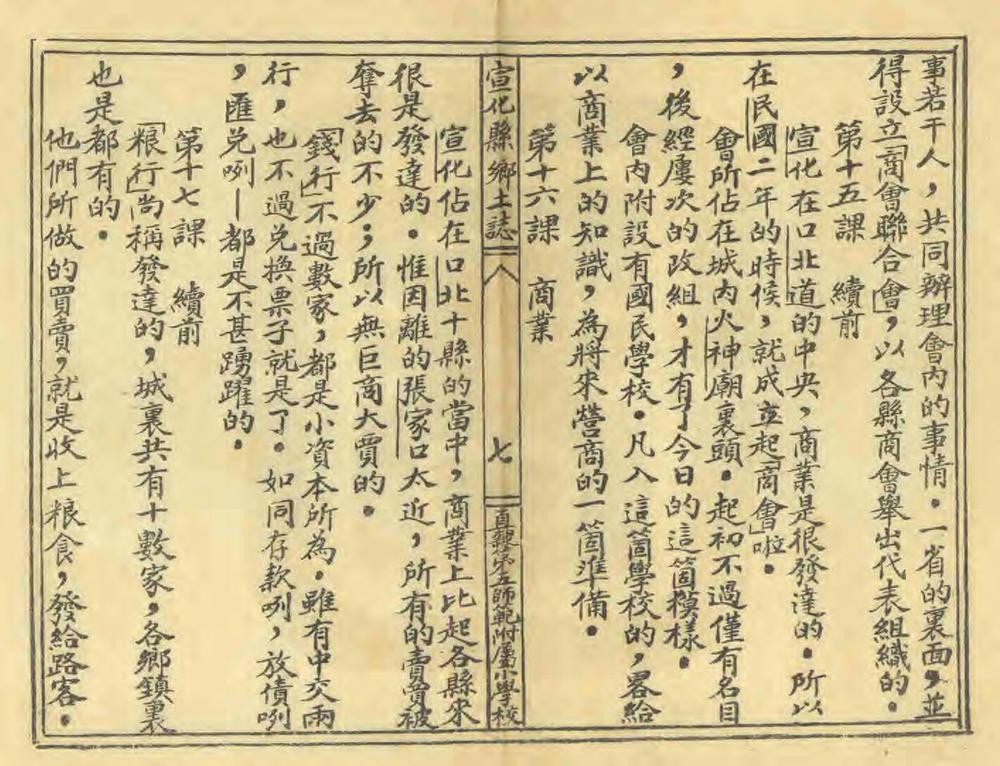 事若干人，共同辦理會內的事情。一省的裏面，並
得設立「商會聯合會」，以各縣商會舉出代表組織的。
第十五課　續前
宣化在口北道的中央，商業是很發達的。所以
在民國二年的時候，就成立起「商會」啦。
會所佔在城內火神廟裏頭。起初不過僅有名目
，後經屢次的改組，才有了今日的這箇模樣。
會內附設有國民學校。凡入這箇學校的，畧給
以商業上的知識，為將來營商的一箇準備。
第十六課　商業
宣化縣鄉土誌　七　直隸第五師範附屬小學校
宣化佔在口北十縣的當中，商業上比起各縣來
很是發達的。惟因離的張家口太近，所有的賣買被
奪去的不少；所以無巨商大賈的。
「錢行」不過數家，都是小資本所為。雖有中交兩
行，也不過兌換票子就是了。如同存款咧，放債咧
，匯兌咧—都是不甚踴躍的。
第十七課　續前
「粮行」尚稱發達的，城裏共有十數家，各鄉鎮裏
也是都有的。
他們所做的買賣，就是收上粮食，發給路客。